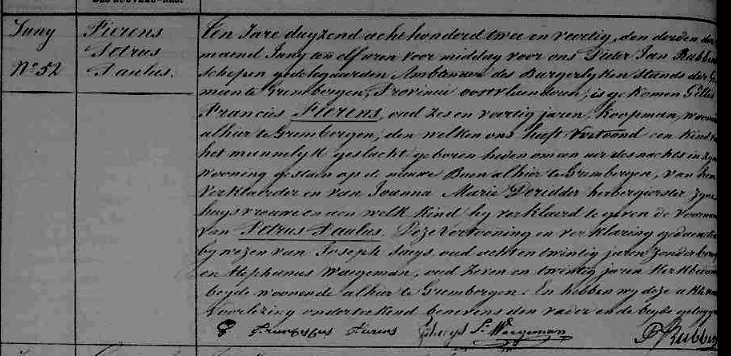 Juny
N° 52
Fierens
Petrus
Paulus.
Een Jare duyzend acht honderd twee en veertig, den derden der
maend Juny ten elf uren voor middag voor ons Pieter Jan Rubbens
schepen gedelegueerden Ambtenaer des Burgerlyken Stands der Ge
meente Grembergen, Provincie oostvlaenderen, is gekomen Gillis
Francies Fierens, oud zes en veertig jaren, Koopman, woonende
alhier te Grembergen, den welken ons heeft vertoond een Kind van
het mannelyk geslacht geboren heden om een ure des nachts in zyne
wooning gestaen op de alhier te Grembergen, van hem
Verklaerder en van Joanna Marie Deridder herbergierster zyne
huysvrouwe en aen welk Kind hy verklaerd te geven de voornaemen
van Petrus Paulus. Deze vertooning en verklaring gedaen ten
bywezen van Joseph oud acht en twintig jaren zonder
en Stephanus Waegeman, oud zeven en twintig jaren
beyde woonende alhier te Grembergen. En hebben wy deze akte naer
Voorlezing onderteekend benevens den vader en de beyde getuygen
Franciscus Fierens St Waegeman P Rubbens